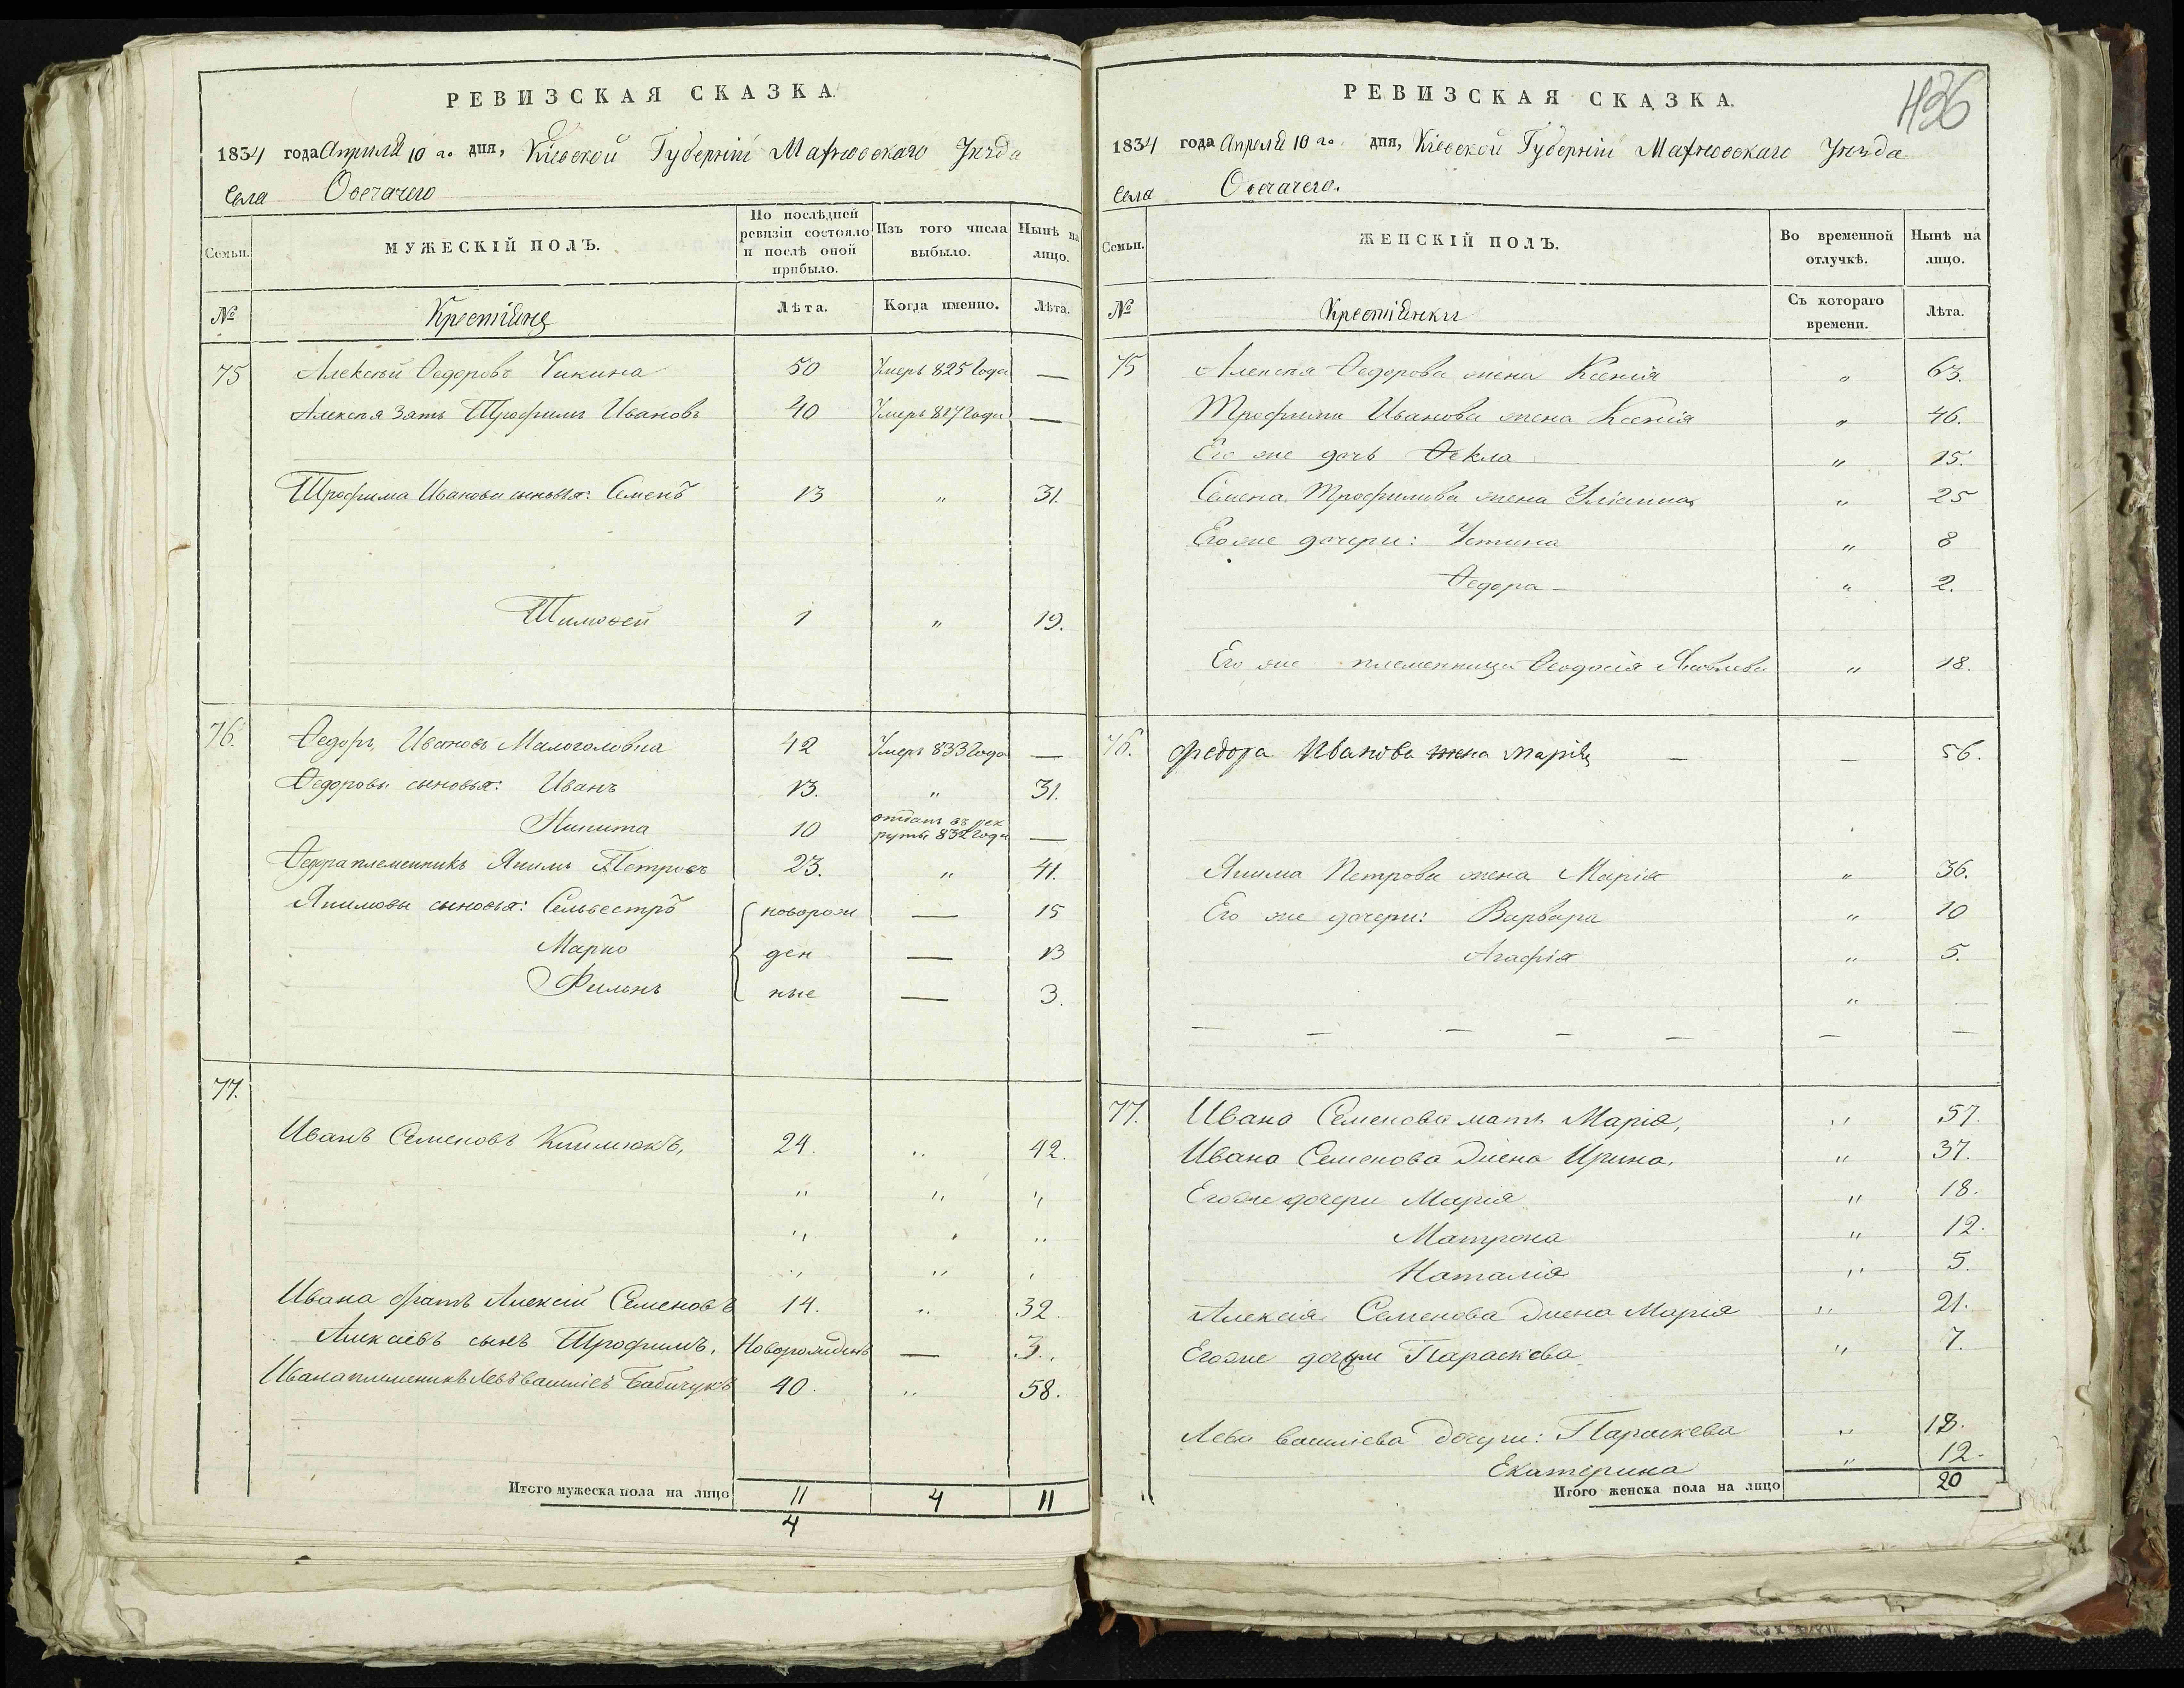 РЕВИЗСКАЯ СКАЗКА.
1834 года Апреля 10 го дня, Кіевской Губерніи Махновскаго Уѣзда
Села Осечачего
Семьи.
МУЖЕСКІЙ ПОЛЪ.
По послѣдней ревизіи состояло и послѣ оной прибыло.
Изъ того числа выбыло.
Нынѣ на лицо.
№
Крестьяне
Лѣта.
Когда именно.
Лѣта.
75 Алексѣй Федоровъ Чикина 50 Умеръ 825 Года —
Алексѣя Зять Трофимъ Ивановъ 40 Умеръ 817 Года —
Трофима Иванова сыновья: Семенъ 13 " 31.
Тимофей 1 " 19.
76. Федоръ Ивановъ Малоголовка 42 Умеръ 833 Года —
Федоровы сыновья: Иванъ 13. " 31.
Никита 10 отданъ въ рек
руты 832 Года —
Федора племенникъ Якимъ Петровъ 23. " 41.
Якимовы сыновья: Сельвестръ новорож — 15
Марко ден — 13
Филонъ ные — 3.
77.
Иванъ Семеновъ Климюкъ, 24. " 42.
" " "
" " "
" " "
Ивана братъ Алексій Семеновъ 14. " 32.
Алексіевъ сынъ Трофимъ, Новорожденъ — 3.
Ивана племеникъ Левъ Василіевъ Бабичукъ 40. " 58.
Итого мужеска пола на лицо 11 4 11
4
436
РЕВИЗСКАЯ СКАЗКА.
1834 года Апреля 10 го дня, Кіевской Губерніи Махновскаго Уѣзда.
Села Осечачего.
Семьи.
ЖЕНСКІЙ ПОЛЪ.
Во временной отлучкѣ.
Нынѣ на лицо.
№
Крестьянки
Съ котораго времени.
Лѣта.
75 Алексѣя Федорова жена Ксенія " 63.
Трофима Иванова жена Ксенія " 46.
Его же дочь Фекла " 15.
Семена Трофимова жена Уліанна " 25
Его же дочери: Устина " 8
Федора " 2.
Его же племенница Феодосія Яковлева " 18.
76. Федора Иванова жена Марія — — 56.
Якима Петрова жена Марія " 36.
Его же дочери: Варвара " 10
Агафія " 5.
"
— — — — — — —
77. Ивана Семенова мать Марія, " 57.
Ивана Семенова жена Ирина. " 37.
Его же дочери Марія " 18.
Матрона " 12.
Наталія " 5.
Алексія Семенова жена Марія " 21.
Его же дочери Параскева " 7.
Лева Василіева дочери: Параскева " 18.
Екатерина " 12.
Итого женска пола на лицо 20